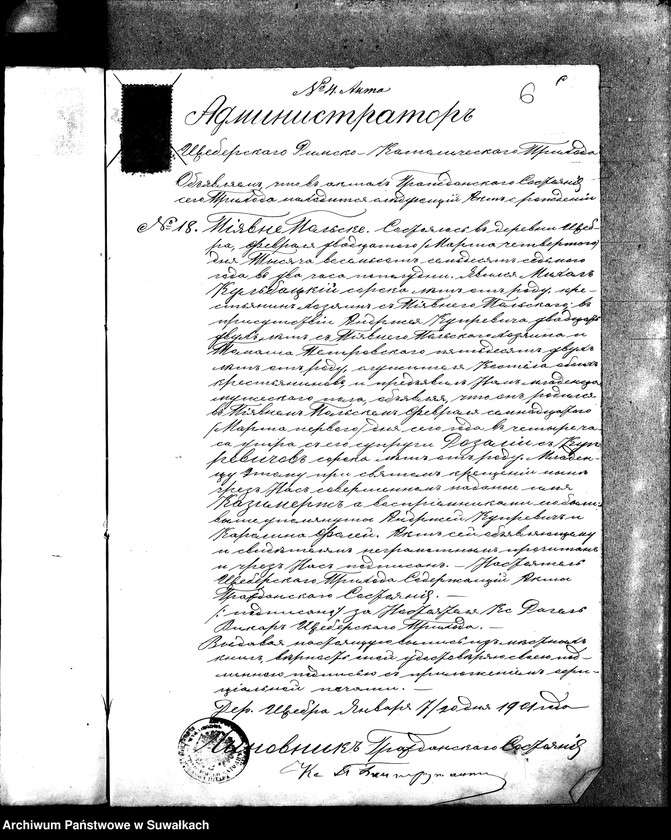 № 4 Акта
6
Администраторъ
Щеберского Римско-Католического Прихода
Объявляет, что в актах Гражданского Состояния
сего Прихода находится следующий Акт о рождении
№ 18. Піявне Польске. Состоялось в деревни Щеб-
ра, Февраля двадцатого /Марта четвертого/
дня Тысяча восемьсот семдесят седьмого
года в два часа пополудни. Явился Михал
Кульбацкій сорока лет от роду, кре-
стьянин хозяин с Піявного Польского, в
присутствіи Андржея Купревича двадцать
двух лет с Піявного Польского хозяина и
Томаша Петровского пятьдесят двух
лет от роду, служителя Костела обоих
крестьянинов, и предъявил Нам младенца
мужеского пола, объявляя, что он родился
в Піявном Польском Февраля семнадцатого
/Марта первого/ дня сего года в четыре ча-
са утра с его супруги Розаліи с Куп-
ревичов сорока лет от роду. Младен-
цу этому при святом крещении ныне
чрез Нас совершенном надано имя
Казимержъ а восприемниками его были
выше упомянутый Андржей Купревич и
Каролина Фасей. Акт сей объявляющему
и свидетелям неграмотным прочитан
и чрез Нас подписан. — Настоятель
Щеберского Прихода Содержащій Акты
Гражданского Состоянія. —
/: подписано/ за Настоятеля Кс
Викарь Щеберского Прихода. —
Выдавая настоящую выпись из местных
книг, верность оной удостоверяю своею под-
линною подписью с приложением офи-
ціальной печати. —
Дер. Щебра Января 7/20 дня 1901 года
Чиновникъ Гражданского Состоянія
Кс
Archiwum Państwowe w Suwałkach